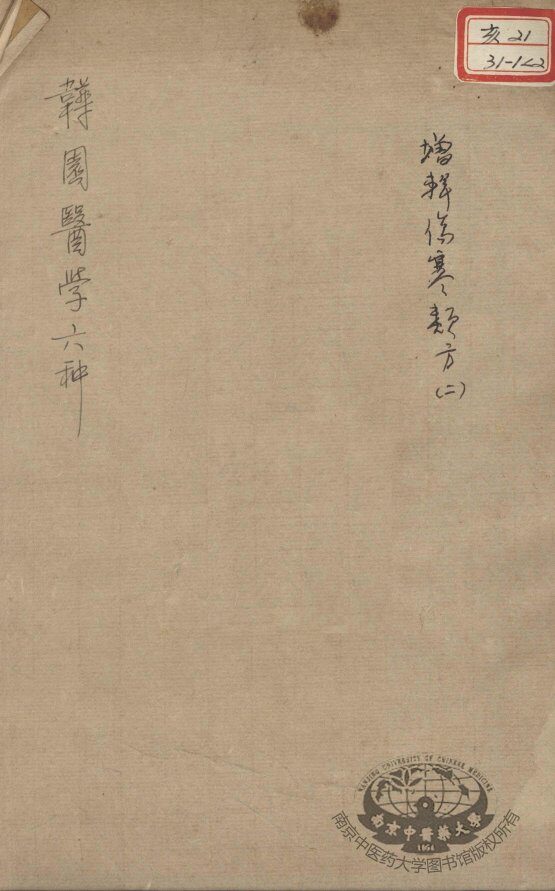 亥 21
31-1<2
增輯伤寒類方(二)
韡園醫学六种
NANJING UNIVERSITY OF CHINESE MEDICINE
南京中醫藥大學
1954
南京中医药大学图书馆版权所有